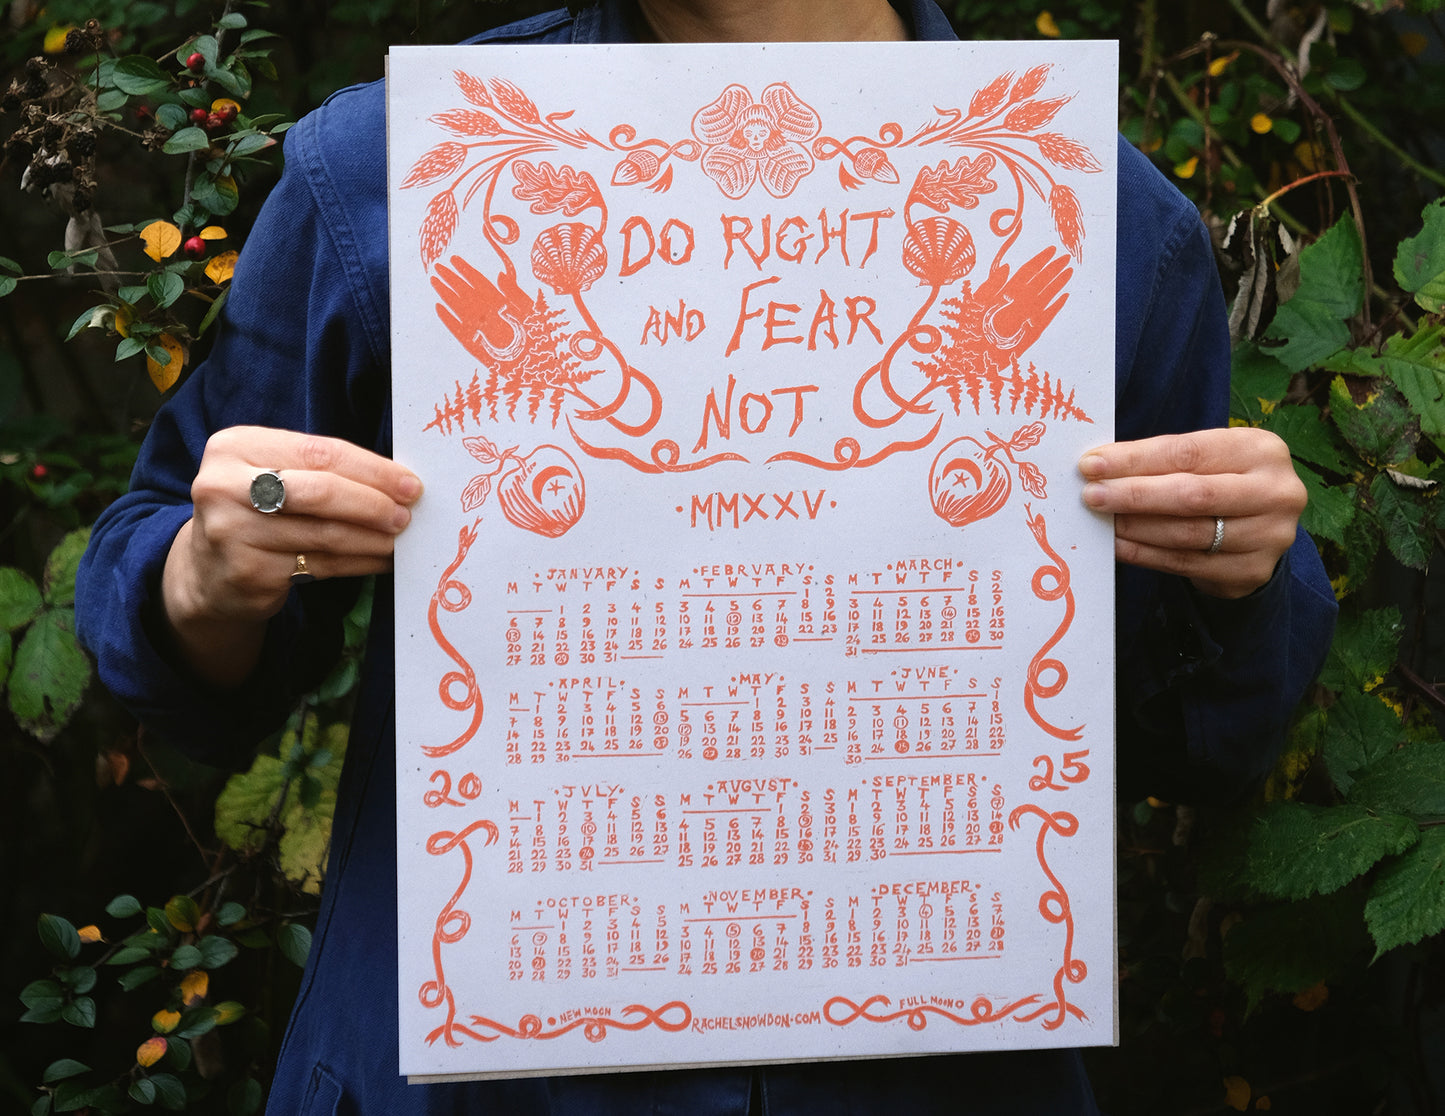 DO RIGHT
AND FEAR
NOT
·MMXXV·
·JANVARY·
M T W T F S S
1 2 3 4 5
6 7 8 9 10 11 12
13 14 15 16 17 18 19
20 21 22 23 24 25 26
27 28 29 30 31
·FEBRVARY·
M T W T F S S
1 2
3 4 5 6 7 8 9
10 11 12 13 14 15 16
17 18 19 20 21 22 23
24 25 26 27 28
·MARCH·
M T W T F S S
1 2
3 4 5 6 7 8 9
10 11 12 13 14 15 16
17 18 19 20 21 22 23
24 25 26 27 28 29 30
31
·APRIL·
M T W T F S S
1 2 3 4 5 6
7 8 9 10 11 12 13
14 15 16 17 18 19 20
21 22 23 24 25 26 27
28 29 30
·MAY·
M T W T F S S
1 2 3 4
5 6 7 8 9 10 11
12 13 14 15 16 17 18
19 20 21 22 23 24 25
26 27 28 29 30 31
·JVNE·
M T W T F S S
1
2 3 4 5 6 7 8
9 10 11 12 13 14 15
16 17 18 19 20 21 22
23 24 25 26 27 28 29
30
20 25
·JVLY·
M T W T F S S
1 2 3 4 5 6
7 8 9 10 11 12 13
14 15 16 17 18 19 20
21 22 23 24 25 26 27
28 29 30 31
·AVGVST·
M T W T F S S
1 2 3
4 5 6 7 8 9 10
11 12 13 14 15 16 17
18 19 20 21 22 23 24
25 26 27 28 29 30 31
·SEPTEMBER·
M T W T F S S
1 2 3 4 5 6 7
8 9 10 11 12 13 14
15 16 17 18 19 20 21
22 23 24 25 26 27 28
29 30
·OCTOBER·
M T W T F S S
1 2 3 4 5
6 7 8 9 10 11 12
13 14 15 16 17 18 19
20 21 22 23 24 25 26
27 28 29 30 31
·NOVEMBER·
M T W T F S S
1 2
3 4 5 6 7 8 9
10 11 12 13 14 15 16
17 18 19 20 21 22 23
24 25 26 27 28 29 30
·DECEMBER·
M T W T F S S
1 2 3 4 5 6 7
8 9 10 11 12 13 14
15 16 17 18 19 20 21
22 23 24 25 26 27 28
29 30 31
NEW MOON
RACHELSNOWDON·COM
FULL MOON